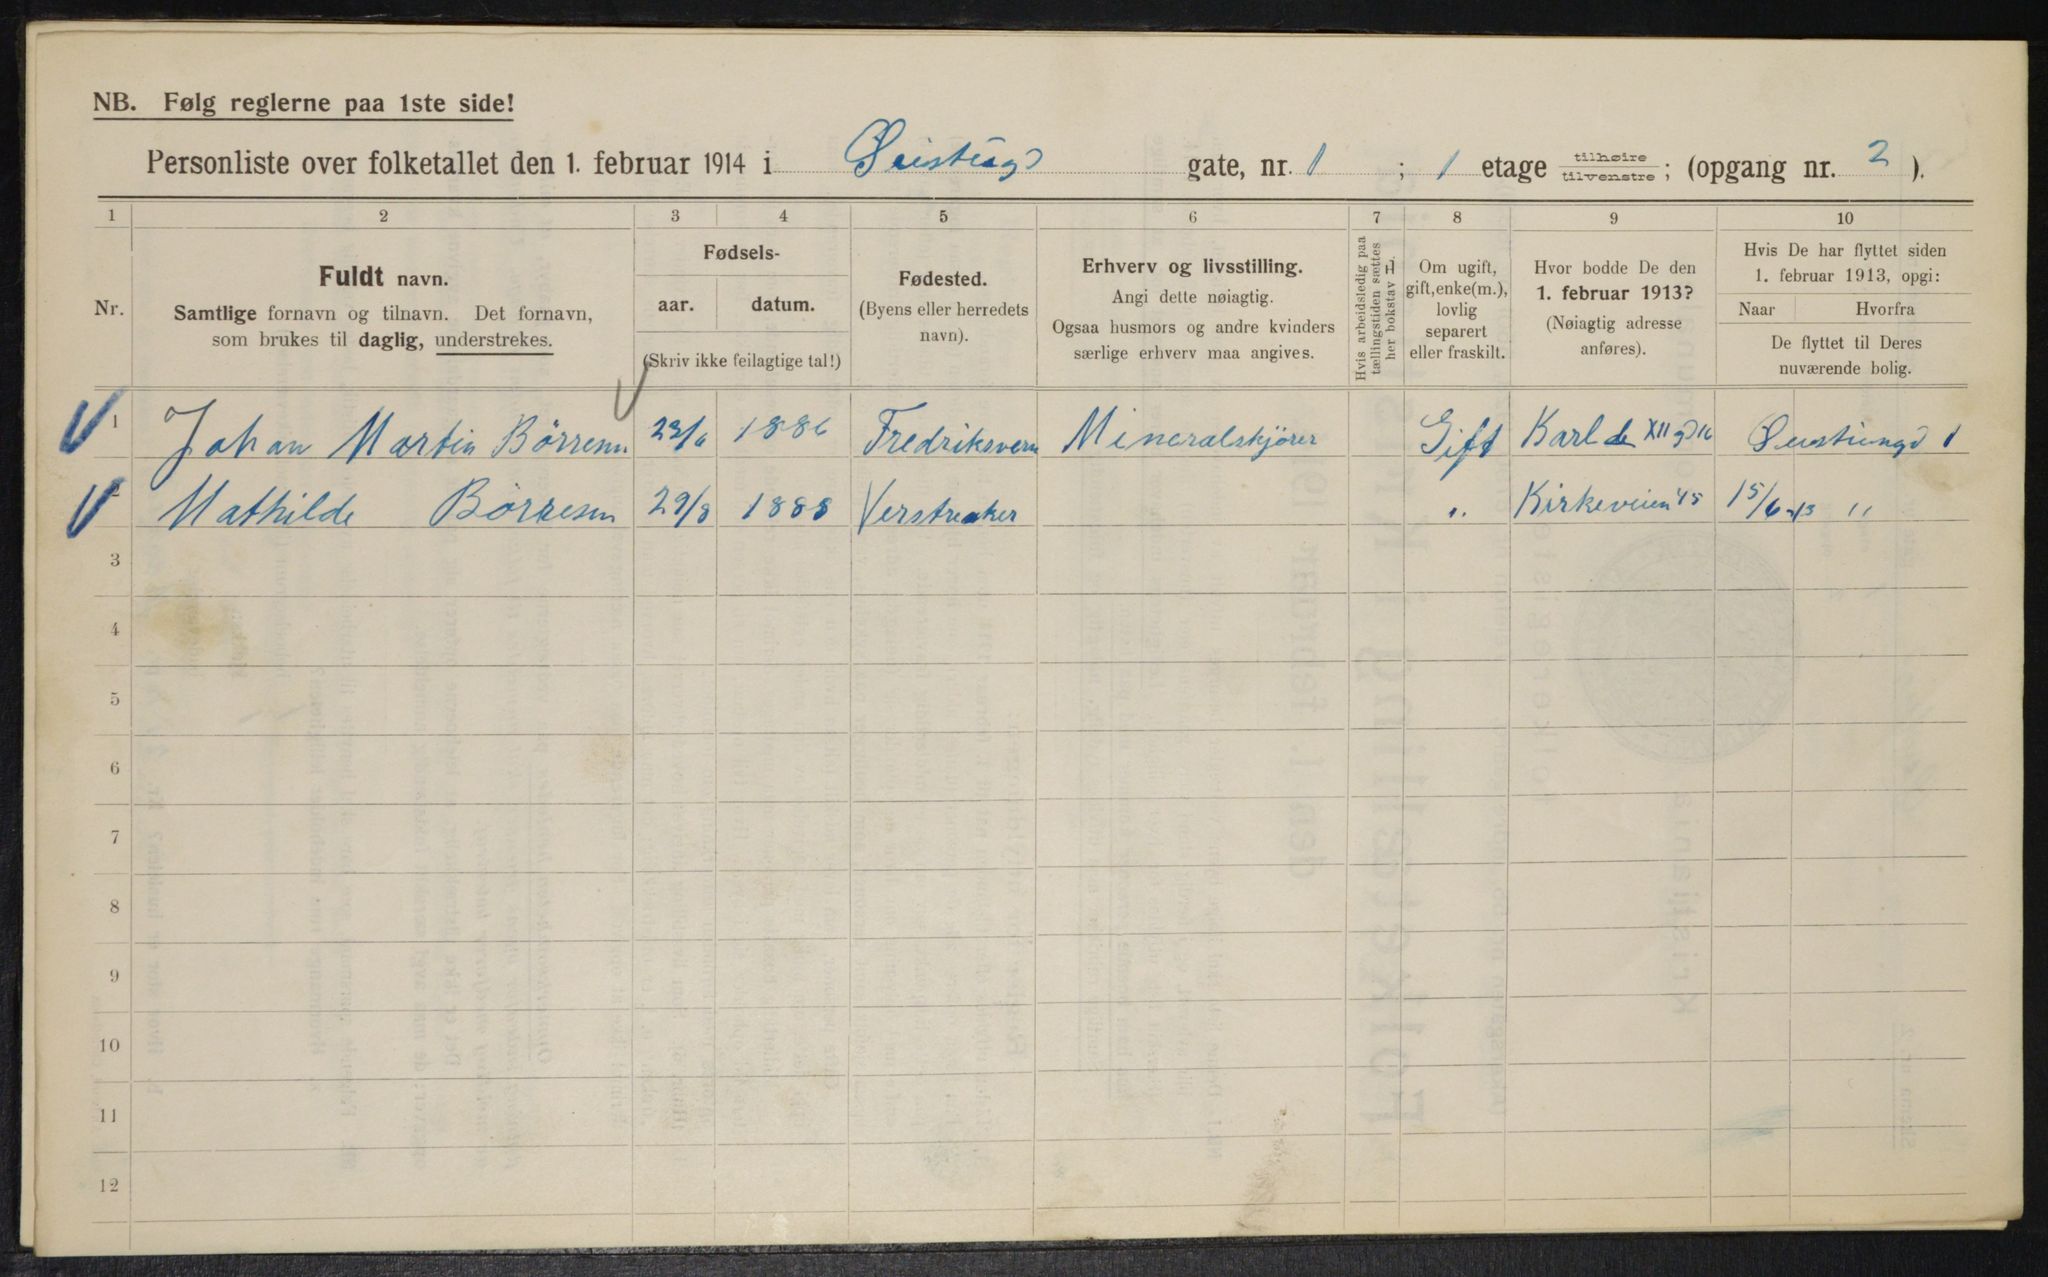 NB. Følg reglerne paa 1ste side!
Personliste over folketallet den 1. februar 1914 i gate, nr. 1 ; 1 etage tilhøire tilvenstre ; (opgang nr. 2 ).
1 2 3 4 5 6 7 8 9 10
Nr.
Fuldt navn.
Samtlige fornavn og tilnavn. Det fornavn,
som brukes til daglig, understrekes.
Fødsels-
aar. datum.
(Skriv ikke feilagtige tal!)
Fødested.
(Byens eller herredets
navn).
Erhverv og livsstilling.
Angi dette nøiagtig.
Ogsaa husmors og andre kvinders
særlige erhverv maa angives.
Hvis arbeidsledig paa
tællingstiden sættes
her bokstav L.
Om ugift,
gift, enke(m.),
lovlig
separert
eller fraskilt.
Hvor bodde De den
1. februar 1913?
(Nøiagtig adresse
anføres).
Hvis De har flyttet siden
1. februar 1913, opgi:
Naar Hvorfra
De flyttet til Deres
nuværende bolig.
1 Johan Martin Børresen 23/6 1886 Fredriksvern Mineralskjører Gift Karl den XII gd 16
Mathilde Børresen 29/8 1888 " Kirkeveien 45 15/6-13 "
3
4
5
6
7
8
9
10
11
12